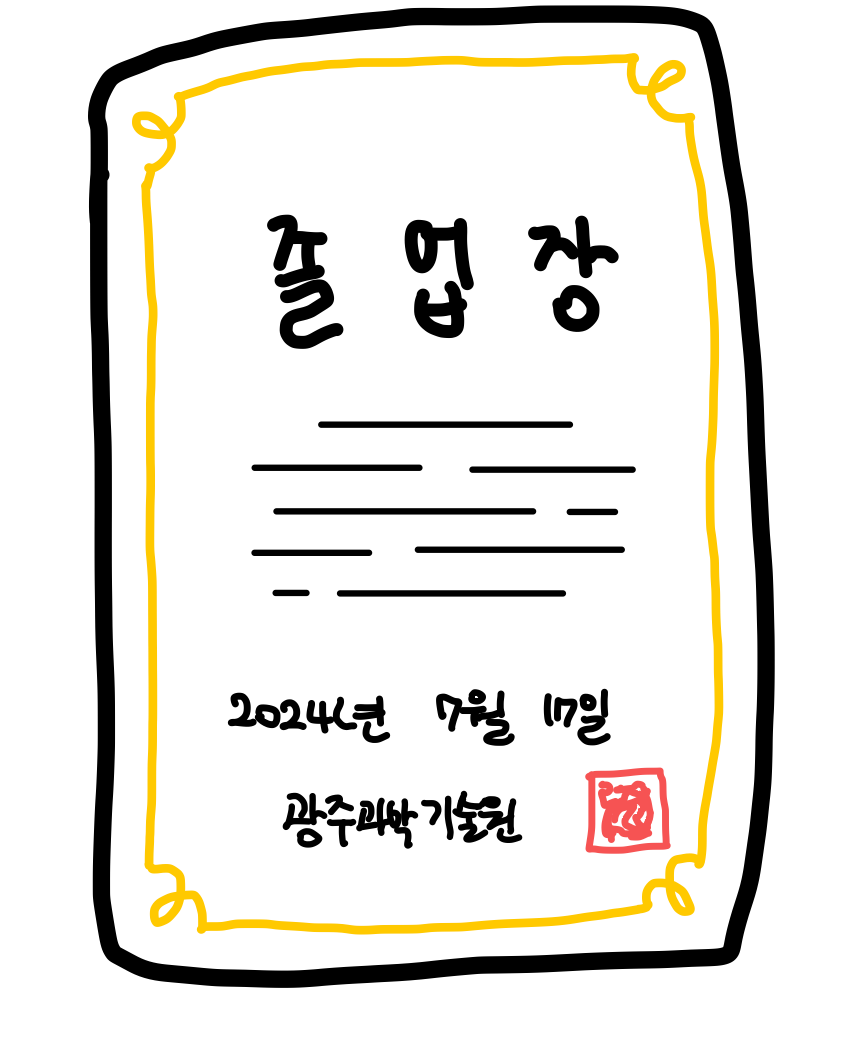 졸업장
2024년 7월 17일
광주과학기술원